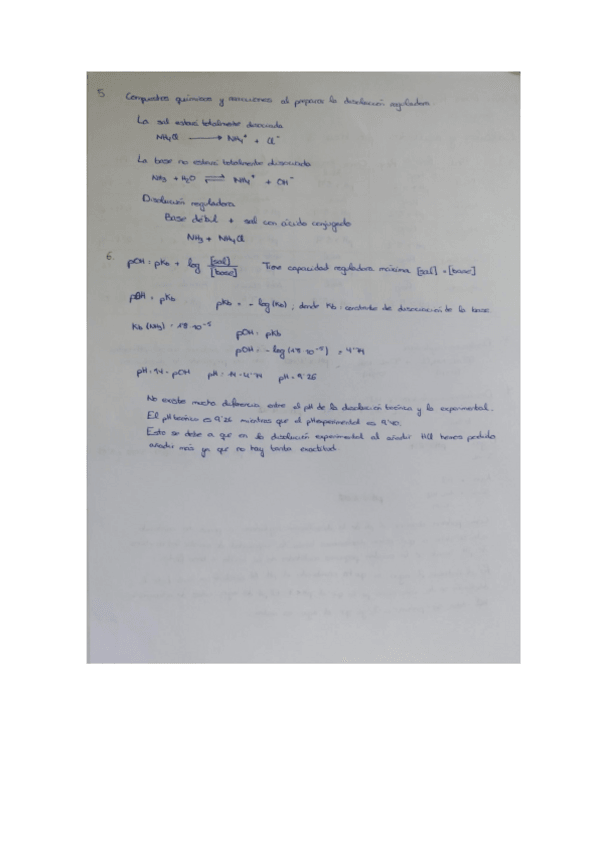 5. Compuestos químicos y reacciones al preparar la disolución reguladora.
La sal estará totalmente disociada
NH₄Cl ⟶ NH₄⁺ + Cl⁻
La base no estará totalmente disociada
NH₃ + H₂O ⇌ NH₄⁺ + OH⁻
Disolución reguladora
Base débil + sal con ácido conjugado
NH₃ + NH₄Cl
6. pOH = pKb + log [sal]/[base] Tiene capacidad reguladora máxima [sal] = [base]
pOH = pKb pKb = - log(Kb), donde Kb: constante de disociación de la base
Kb (NH₃) = 1'8·10⁻⁵ pOH = pKb
pOH = - log (1'8·10⁻⁵) = 4'74
pH = 14 - pOH pH = 14 - 4'74 pH = 9'26
No existe mucha diferencia entre el pH de la disolución teórica y la experimental.
El pH teórico es 9'26 mientras que el pH experimental es 9'40.
Esto se debe a que en la disolución experimental al añadir HCl hemos podido
añadir más ya que no hay tanta exactitud.